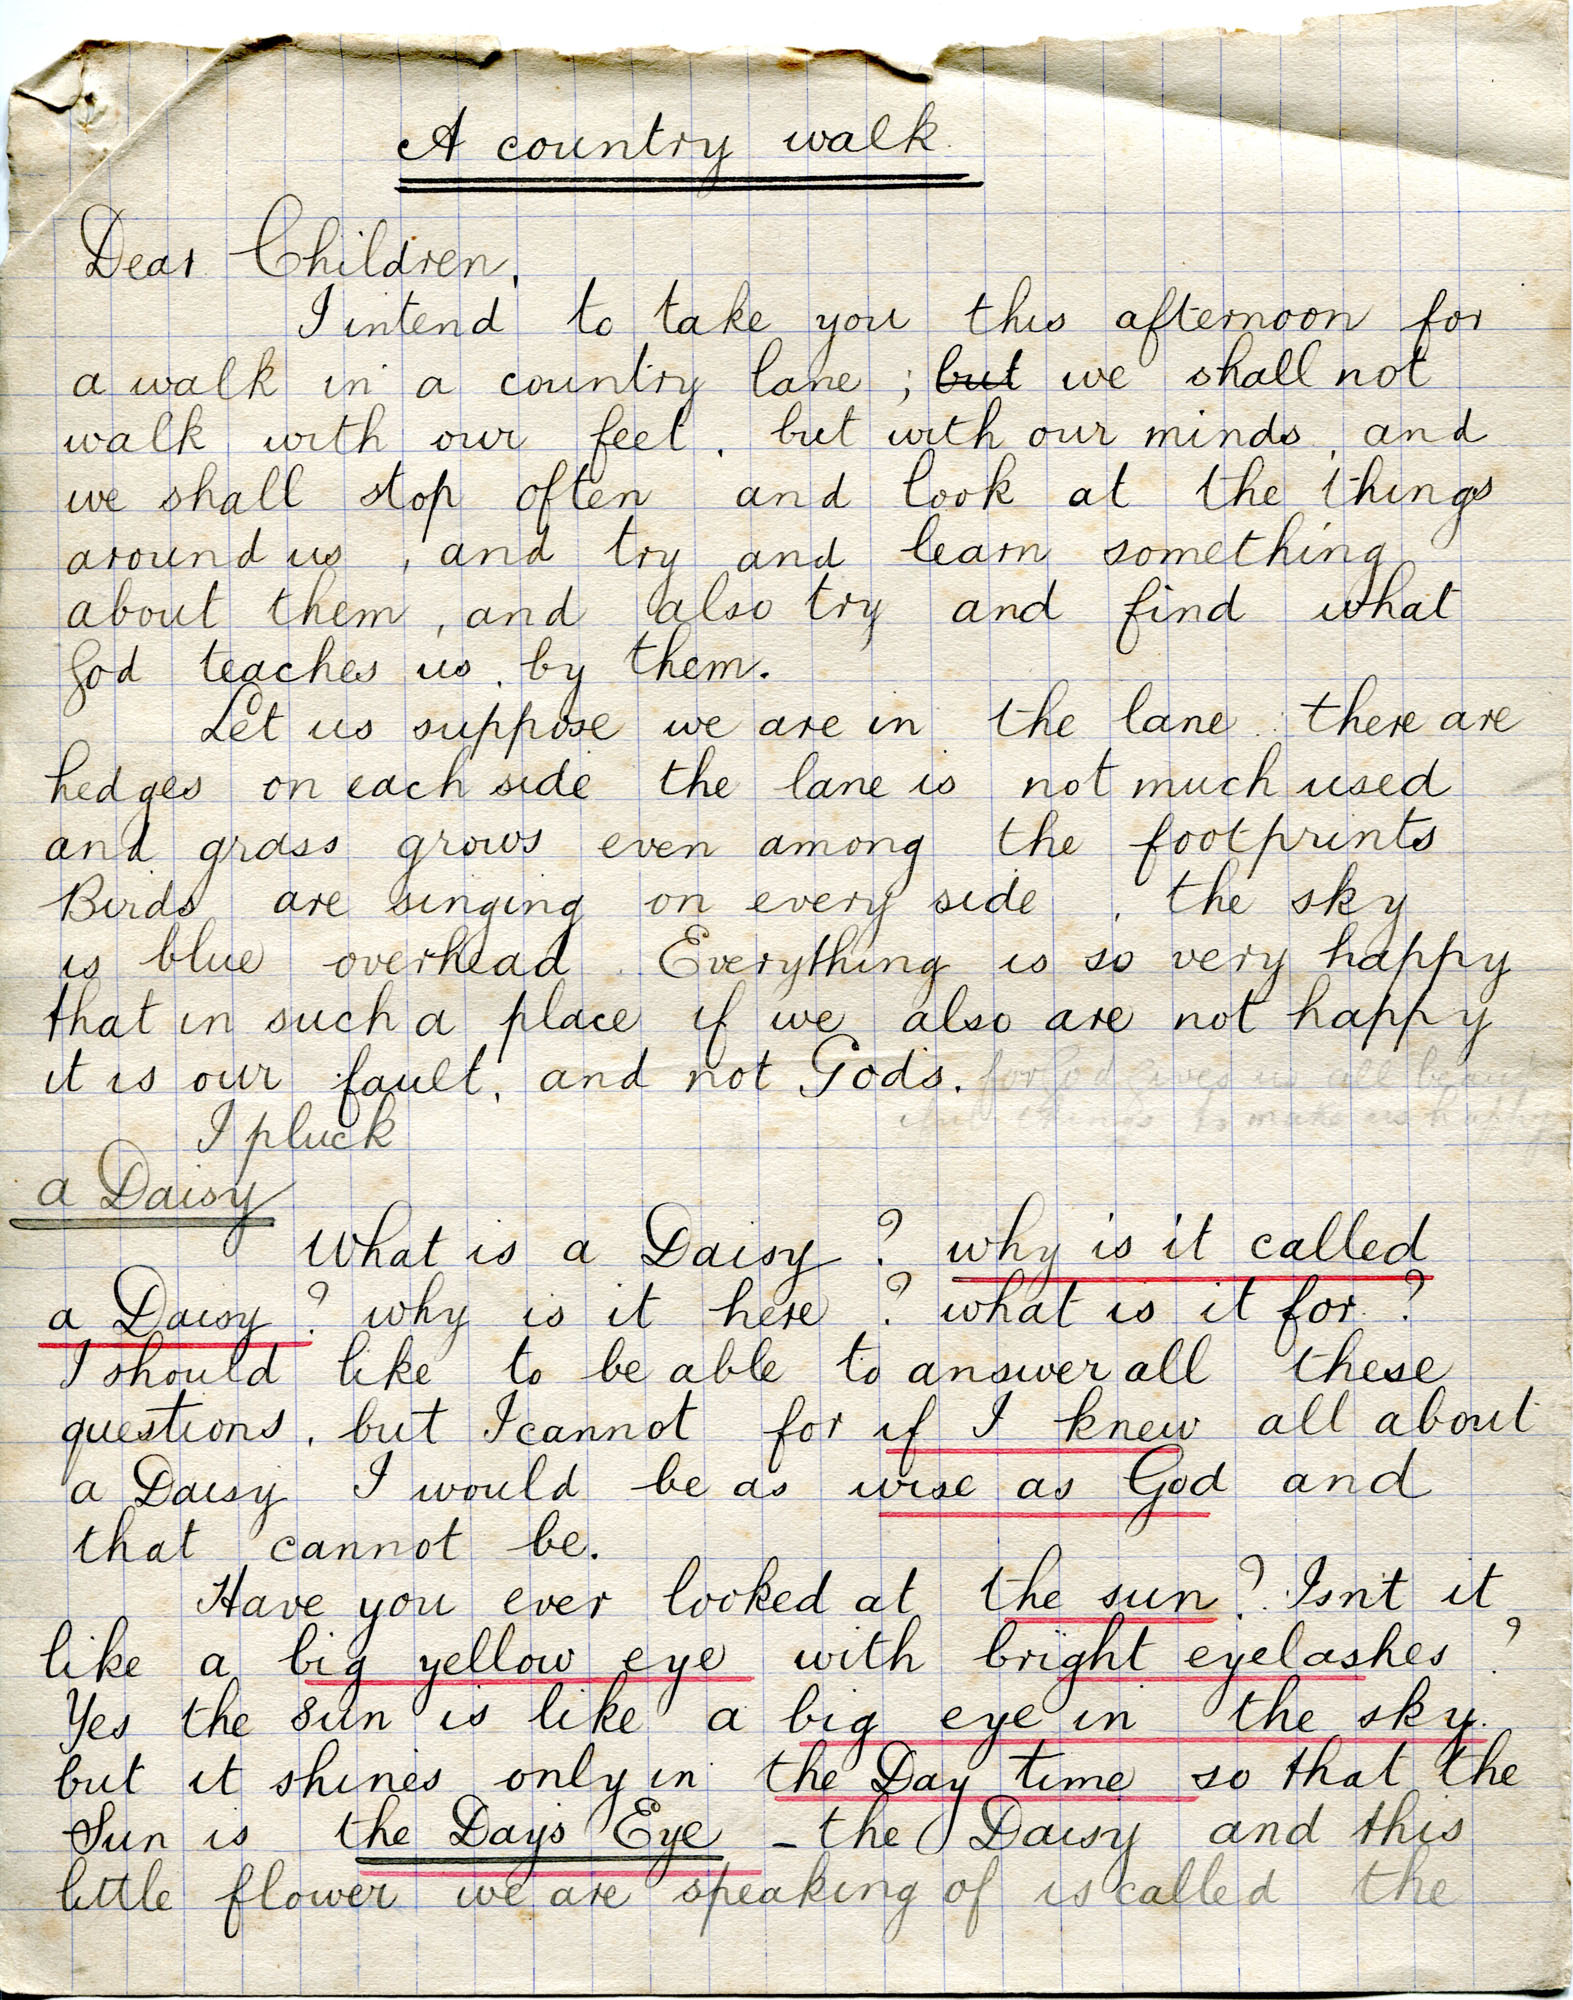 A country walk
Dear Children,
I intend to take you this afternoon for
a walk in a country lane ; but we shall not
walk with our feet, but with our minds, and
we shall stop often and look at the things
around us, and try and learn something
about them, and also try and find what
God teaches us, by them.
Let us suppose we are in the lane. there are
hedges on each side the lane is not much used
and grass grows even among the footprints
Birds are singing on every side, the sky
is blue overhead. Everything is so very happy
that in such a place if we also are not happy
it is our fault, and not Gods. for God gives us all beauti
ful things to make us happy
I pluck
a Daisy
What is a Daisy ? why is it called
a Daisy ? why is it here ? what is it for ?
I should like to be able to answer all these
questions, but I cannot for if I knew all about
a Daisy I would be as wise as God and
that cannot be.
Have you ever looked at the sun ? Isn't it
like a big yellow eye with bright eyelashes ?
Yes the Sun is like a big eye in the sky.
but it shines only in the Day time so that the
Sun is the Day's Eye - the Daisy and this
little flower we are speaking of is called the